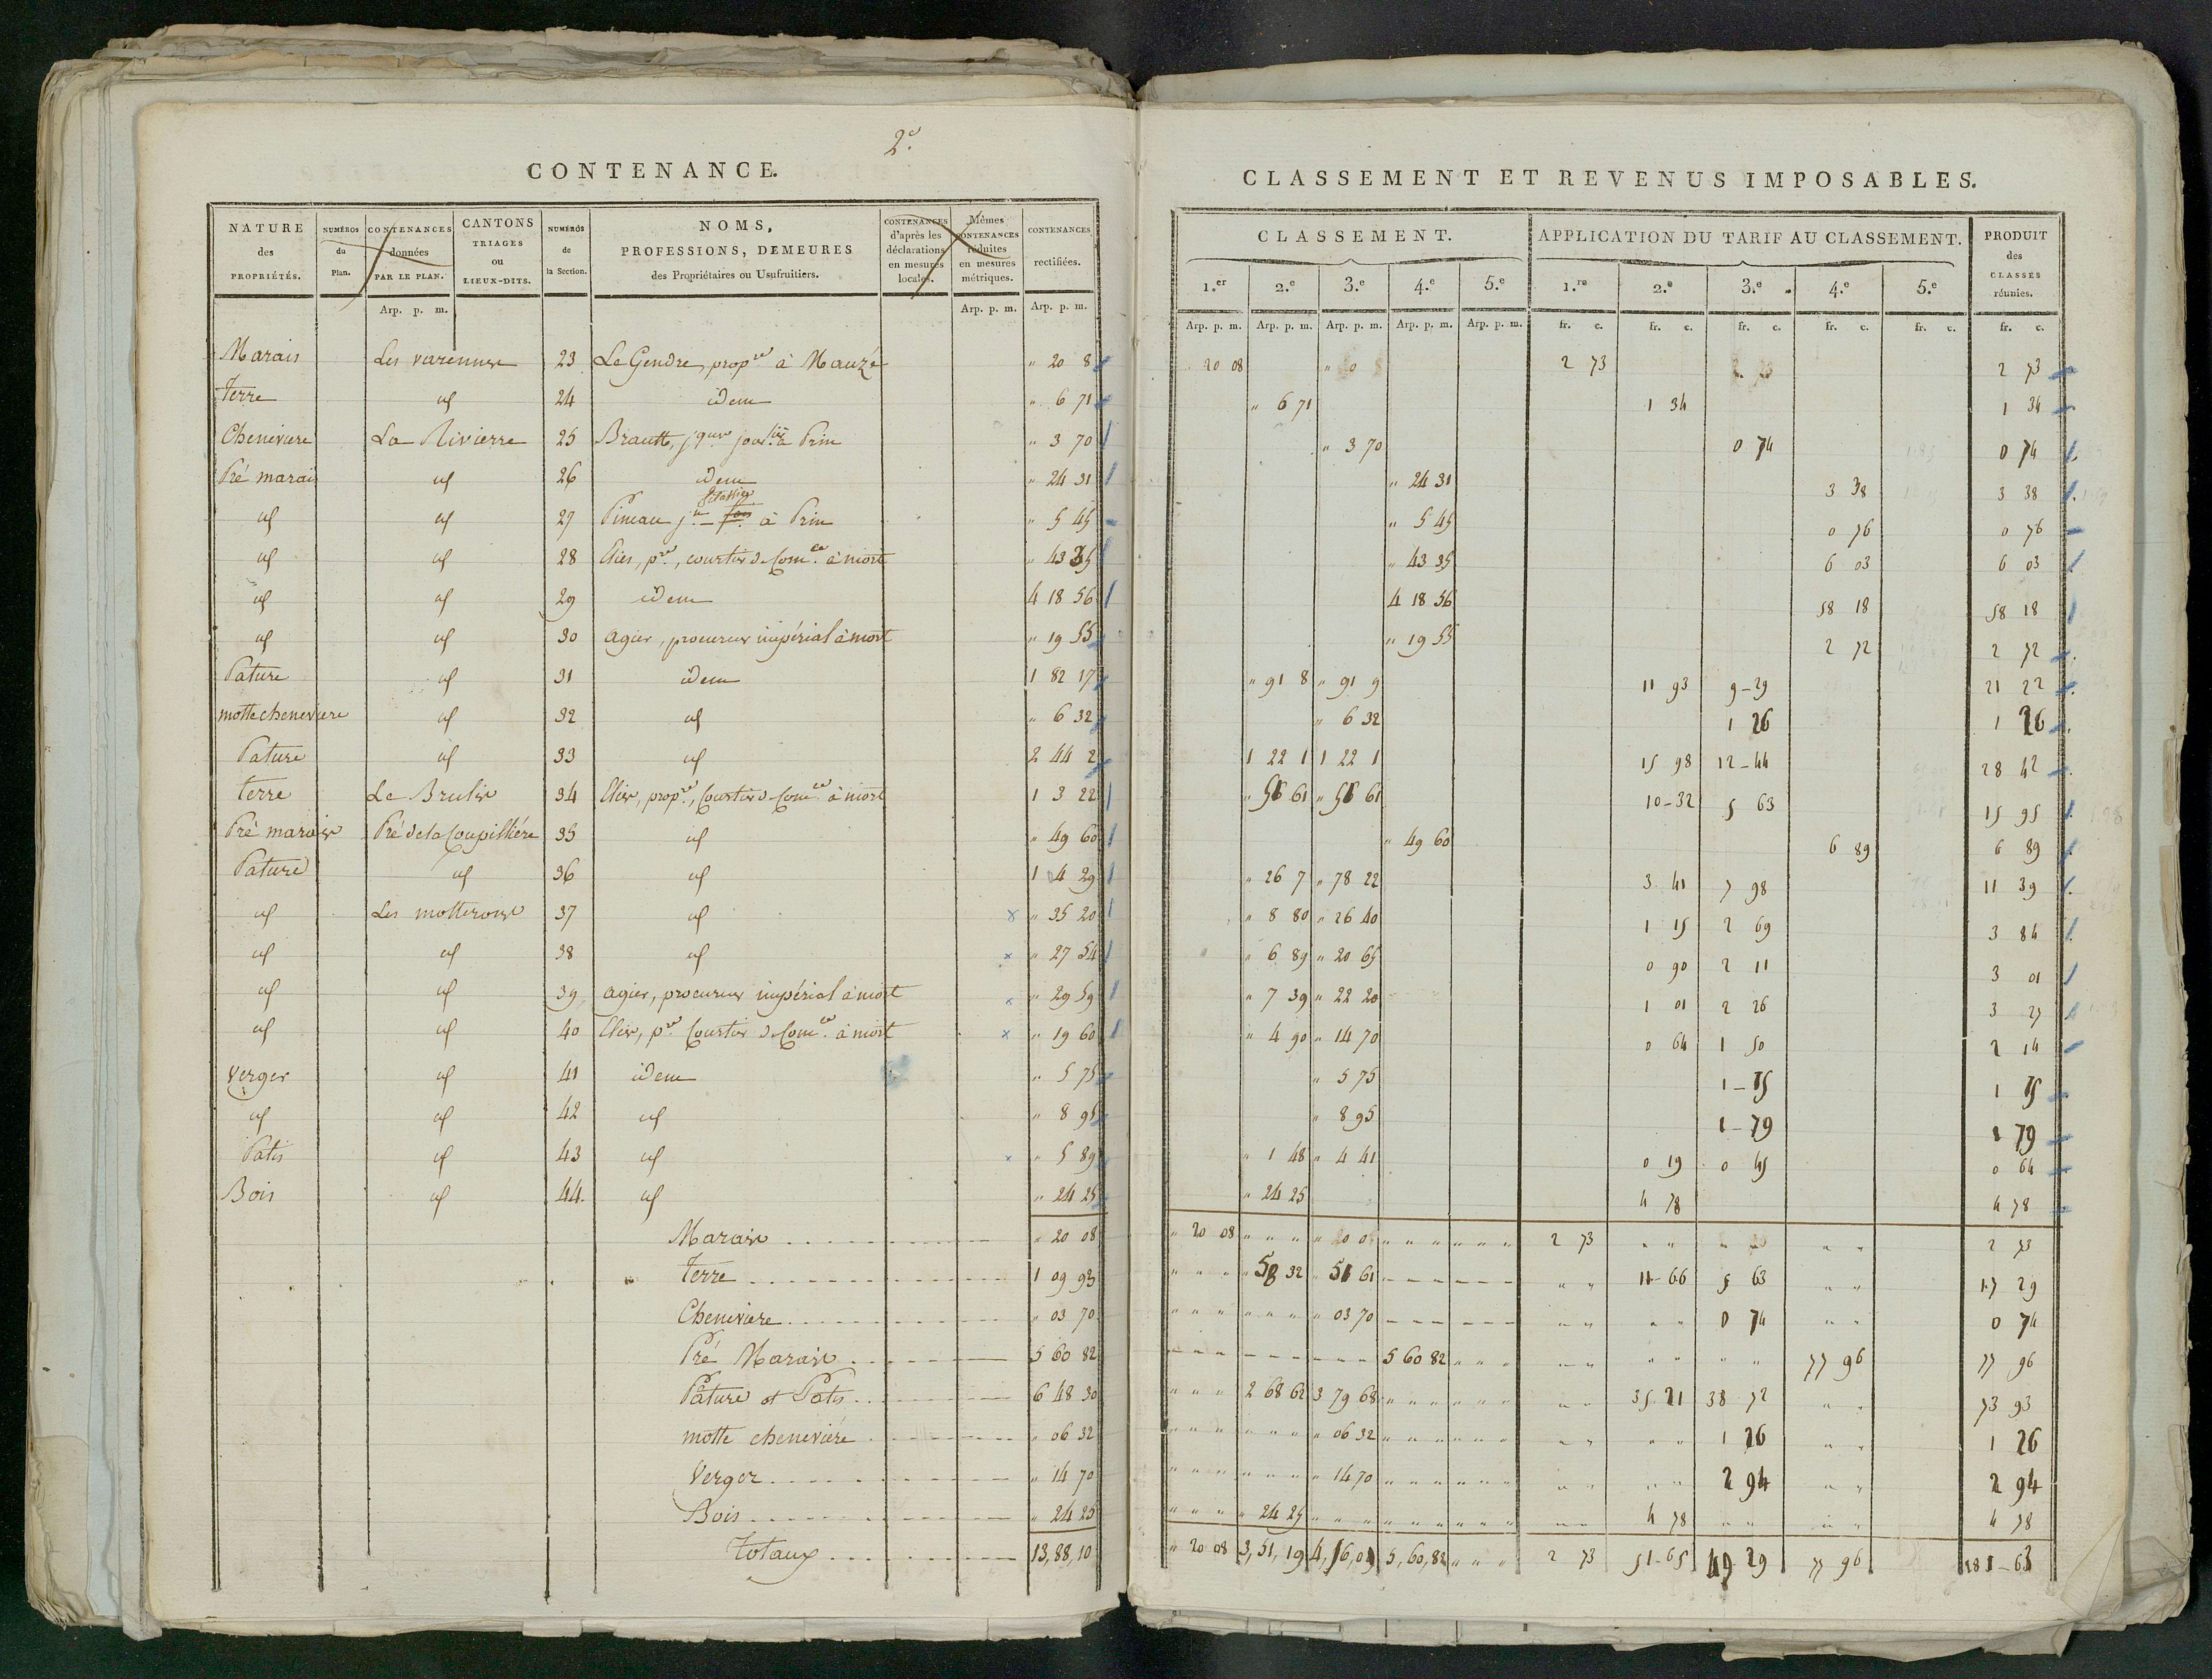 2e.
CONTENANCE.
NATURE des PROPRIÉTÉS. NUMÉROS du Plan. CONTENANCES données PAR LE PLAN. CANTONS TRIAGES ou LIEUX-DITS. NUMÉROS de la Section. NOMS, PROFESSIONS, DEMEURES des Propriétaires ou Usufruitiers. CONTENANCES d'après les déclarations en mesures locales. Mêmes CONTENANCES réduites en mesures métriques. CONTENANCES rectifiées.
Arp. p. m. Arp. p. m. Arp. p. m.
Marais Les varennes 23 Le Gendre, propre à Mauzé " 20 8
Terre id 24 idem " 6 71
Cheneviere La Rivierre 25 jques jourlier à Prin " 3 70
Pré marais id 26 idem " 24 31
id id 27 Pineau jn à Prin " 5 45
id id 28 Elies, pre, courtier de Comce à niort " 43 35
id id 29 idem 4 18 56
id id 30 agier, procureur impérial à niort " 19 55
Pature id 31 idem 1 82 17
motte cheneviere id 32 id " 6 32
Pature id 33 id 2 44 2
terre Le Brulis 34 Elies, propre, Courtier de Comce à niort 1 3 22
Pré marais Pré de la Coupilliére 35 id " 49 60
Pature id 36 id 1 4 29
id Les motterons 37 id " 35 20
id id 38 id " 27 54
id id 39 agier, procureur impérial à niort " 29 59
id id 40 Elies, pre Courtier de Comce à niort " 19 60
Verger id 41 idem " 5 75
id id 42 id " 8 95
Patis id 43 id " 5 89
Bois id 44 id " 24 25
Marais " 20 08
Terre 1 09 93
Cheneviere " 03 70
Pré Marais 5 60 82
Pâture et Patis 6 48 30
motte cheneviére " 06 32
Verger " 14 70
Bois " 24 25
Totaux 13,88,10
CLASSEMENT ET REVENUS IMPOSABLES.
CLASSEMENT. APPLICATION DU TARIF AU CLASSEMENT. PRODUIT des CLASSES réunies.
1.er 2.e 3.e 4.e 5.e 1.re 2.e 3.e 4.e 5.e
Arp. p. m. Arp. p. m. Arp. p. m. Arp. p. m. Arp. p. m. fr. c. fr. c. fr. c. fr. c. fr. c. fr. c.
20 08 2 73 2 73
" 6 71 1 34 1 34
" 3 70 0 74 0 74
" 24 31 3 38 3 38
" 5 45 0 76 0 76
" 43 35 6 03 6 03
4 18 56 58 18 58 18
" 19 55 2 72 2 72
" 91 8 " 91 9 11 93 9-29 21 22
" 6 32 1 26 1 26
1 22 1 1 22 1 15 98 12-44 28 42
" 51 61 " 51 61 10-32 5 63 15 95
" 49 60 6 89 6 89
" 26 7 " 78 22 3 41 7 98 11 39
" 8 80 " 26 40 1 15 2 69 3 84
" 6 89 " 20 65 0 90 2 11 3 01
" 7 39 " 22 20 1 01 2 26 3 27
" 4 90 " 14 70 0 64 1 50 2 14
" 5 75 1-15 1 15
" 8 95 1-79 1 79
" 1 48 " 4 41 0 19 0 45 0 64
" 24 25 4 78 4 78
" 20 08 2 73 2 73
" 58 32 " 51 61 11-66 5 63 17 29
" 03 70 0 74 0 74
5 60 82 77 96 77 96
2 68 62 3 79 68 35 21 38 72 73 93
" 06 32 1 26 1 26
" 14 70 2 94 2 94
" 24 25 4 78 4 78
" 20 08 3,51,19 4,56,01 5,60,82 2 73 51-65 49 29 77 96 181-63